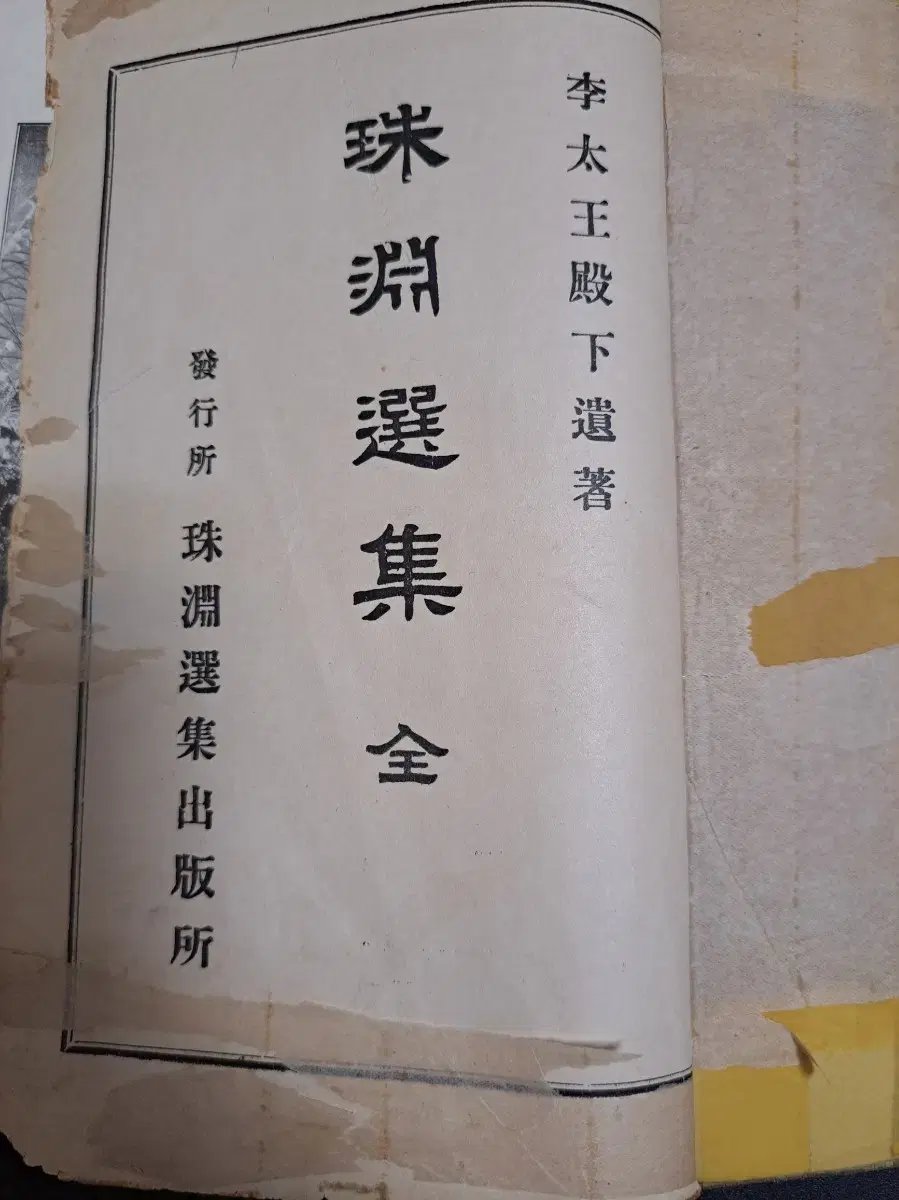 李太王殿下遺著
珠淵選集 全
發行所 珠淵選集出版所